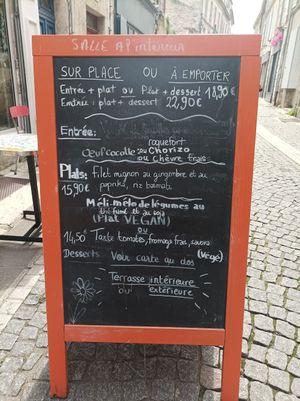 SALLE A l'intérieur
SUR PLACE OU À EMPORTER
Entrée + plat ou Plat + dessert 18,90€
Entrée + plat + dessert 22,90€
Entrée:
roquefort
Œuf cocotte ou Chorizo
ou chèvre frais
Plats: filet mignon au gingembre et au
15,90€ paprika, riz basmati
Méli-mélo de légumes au
thé fumé et au soja
(Plat VEGAN)
ou
14,50€ Tarte tomates, fromage frais,
(Végé)
Desserts Voir carte au dos
Terrasse intérieure
ou extérieure